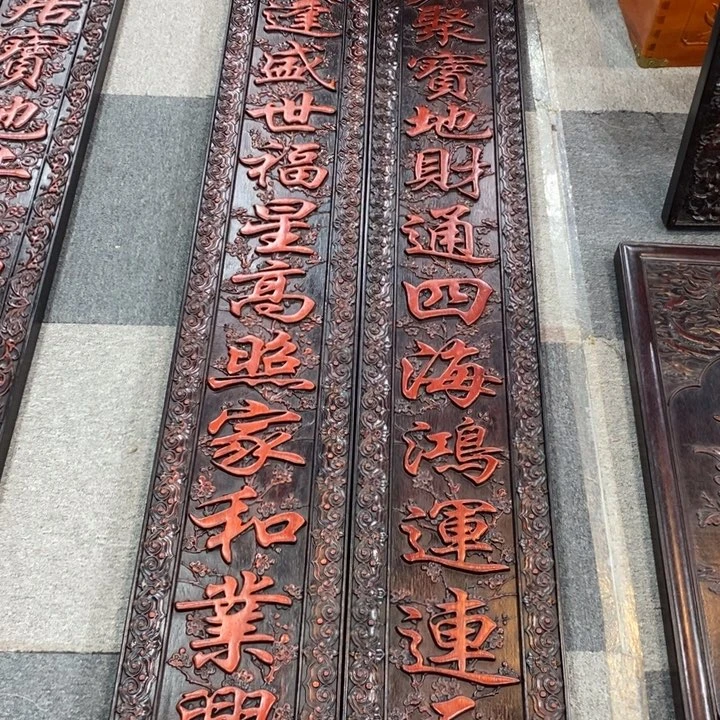 聚寶地財通四海鴻運連
逢盛世福星高照家和業興
寶地